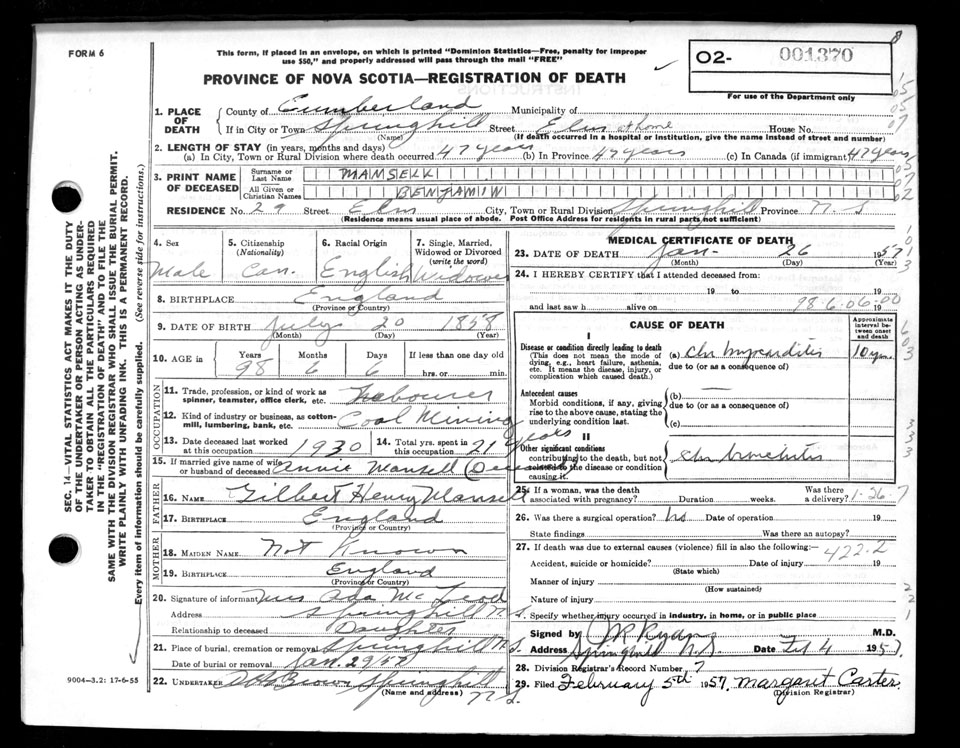 FORM 6
This form, if placed in an envelope, on which is printed "Dominion Statistics—Free, penalty for improper
use $50," and properly addressed will pass through the mail "FREE"
PROVINCE OF NOVA SCOTIA—REGISTRATION OF DEATH
02- 001370
For use of the Department only
SEC. 14—VITAL STATISTICS ACT MAKES IT THE DUTY
OF THE UNDERTAKER OR PERSON ACTING AS UNDER-
TAKER TO OBTAIN ALL THE PARTICULARS REQUIRED
IN THE "REGISTRATION OF DEATH" AND TO FILE THE
SAME WITH THE DIVISON REGISTRAR WHO SHALL ISSUE THE BURIAL PERMIT.
WRITE PLAINLY WITH UNFADING INK. THIS IS A PERMANENT RECORD.
Every item of information should be carefully supplied. (See reverse side for instructions.)
1. PLACE OF DEATH County of Cumberland Municipality of
If in City or Town Springhill Street Elm House No.
(Name) (If death occurred in a hospital or institution, give the name instead of street and number)
2. LENGTH OF STAY (in years, months and days)
(a) In City, Town or Rural Division where death occurred 47 years (b) In Province 47 years (c) In Canada (if immigrant) 47 years
3. PRINT NAME OF DECEASED Surname or Last Name MANSELL
All Given or Christian Names BENJAMIN
RESIDENCE No. 29 Street Elm City, Town or Rural Division Springhill Province N.S
(Residence means usual place of abode. Post Office Address for residents in rural parts not sufficient)
4. Sex Male
5. Citizenship (Nationality) Can.
6. Racial Origin English
7. Single, Married, Widowed or Divorced (write the word) Widower
8. BIRTHPLACE England
(Province or Country)
9. DATE OF BIRTH July 20 1858
(Month) (Day) (Year)
10. AGE in Years 98 Months 6 Days 6 If less than one day old
hrs. or min.
OCCUPATION
11. Trade, profession, or kind of work as
spinner, teamster, office clerk, etc. Labourer
12. Kind of industry or business, as cotton-
mill, lumbering, bank, etc. Coal Mining
13. Date deceased last worked at this occupation 1930 14. Total yrs. spent in this occupation 21 years
15. If married give name of wife
or husband of deceased Annie Mansell (Deceased)
FATHER
16. NAME Gilbert Henry Mansell
17. BIRTHPLACE England
(Province or Country)
MOTHER
18. MAIDEN NAME Not Known
19. BIRTHPLACE England
(Province or Country)
20. Signature of informant Mrs Ada McLeod
Address Springhill N.S.
Relationship to deceased Daughter
21. Place of burial, cremation or removal Springhill N.S.
Date of burial or removal Jan. 29 57
22. UNDERTAKER Brown Springhill
(Name and address) N.S.
9004—3.2: 17-6-55
MEDICAL CERTIFICATE OF DEATH
23. DATE OF DEATH Jan- 26 1957
(Month) (Day) (Year)
24. I HEREBY CERTIFY that I attended deceased from:
19 to 19
and last saw h alive on 19
98-6-06-00
CAUSE OF DEATH
Approximate interval between onset and death
I
Disease or condition directly leading to death
(This does not mean the mode of
dying, e.g., heart failure, asthenia,
etc. It means the disease, injury, or
complication which caused death.)
(a) chr myocarditis 10 yrs.
due to (or as a consequence of)
Antecedent causes
Morbid conditions, if any, giving
rise to the above cause, stating the
underlying condition last.
(b) —
due to (or as a consequence of)
(c)
II
Other significant conditions
contributing to the death, but not
related to the disease or condition
causing it.
chr bronchitis
25. If a woman, was the death Was there
associated with pregnancy? Duration weeks. a delivery?
1-26-7
26. Was there a surgical operation? No Date of operation 19
State findings Was there an autopsy?
27. If death was due to external causes (violence) fill in also the following:—
422.2
Accident, suicide or homicide? Date of injury 19
(State which)
Manner of injury
(How sustained)
Specify whether injury occurred in industry, in home, or in public place
Signed by M.D.
Address Springhill N.S. Date Feb 4 1957.
28. Division Registrar's Record Number 7
29. Filed February 5th 1957. Margaret Carter
(Division Registrar)